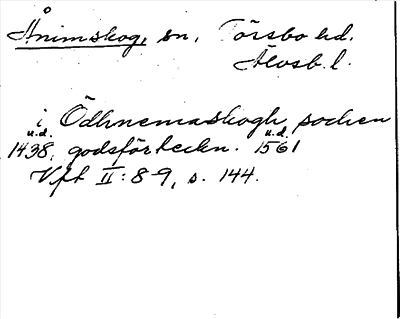 Ånimskog, sn, Tössbo hd.
Älvsb. l.
i Ödhnemaskogh sochen
u.d. u.d.
1438, godsförteckn. 1561
Vft II: 8-9, s. 144.